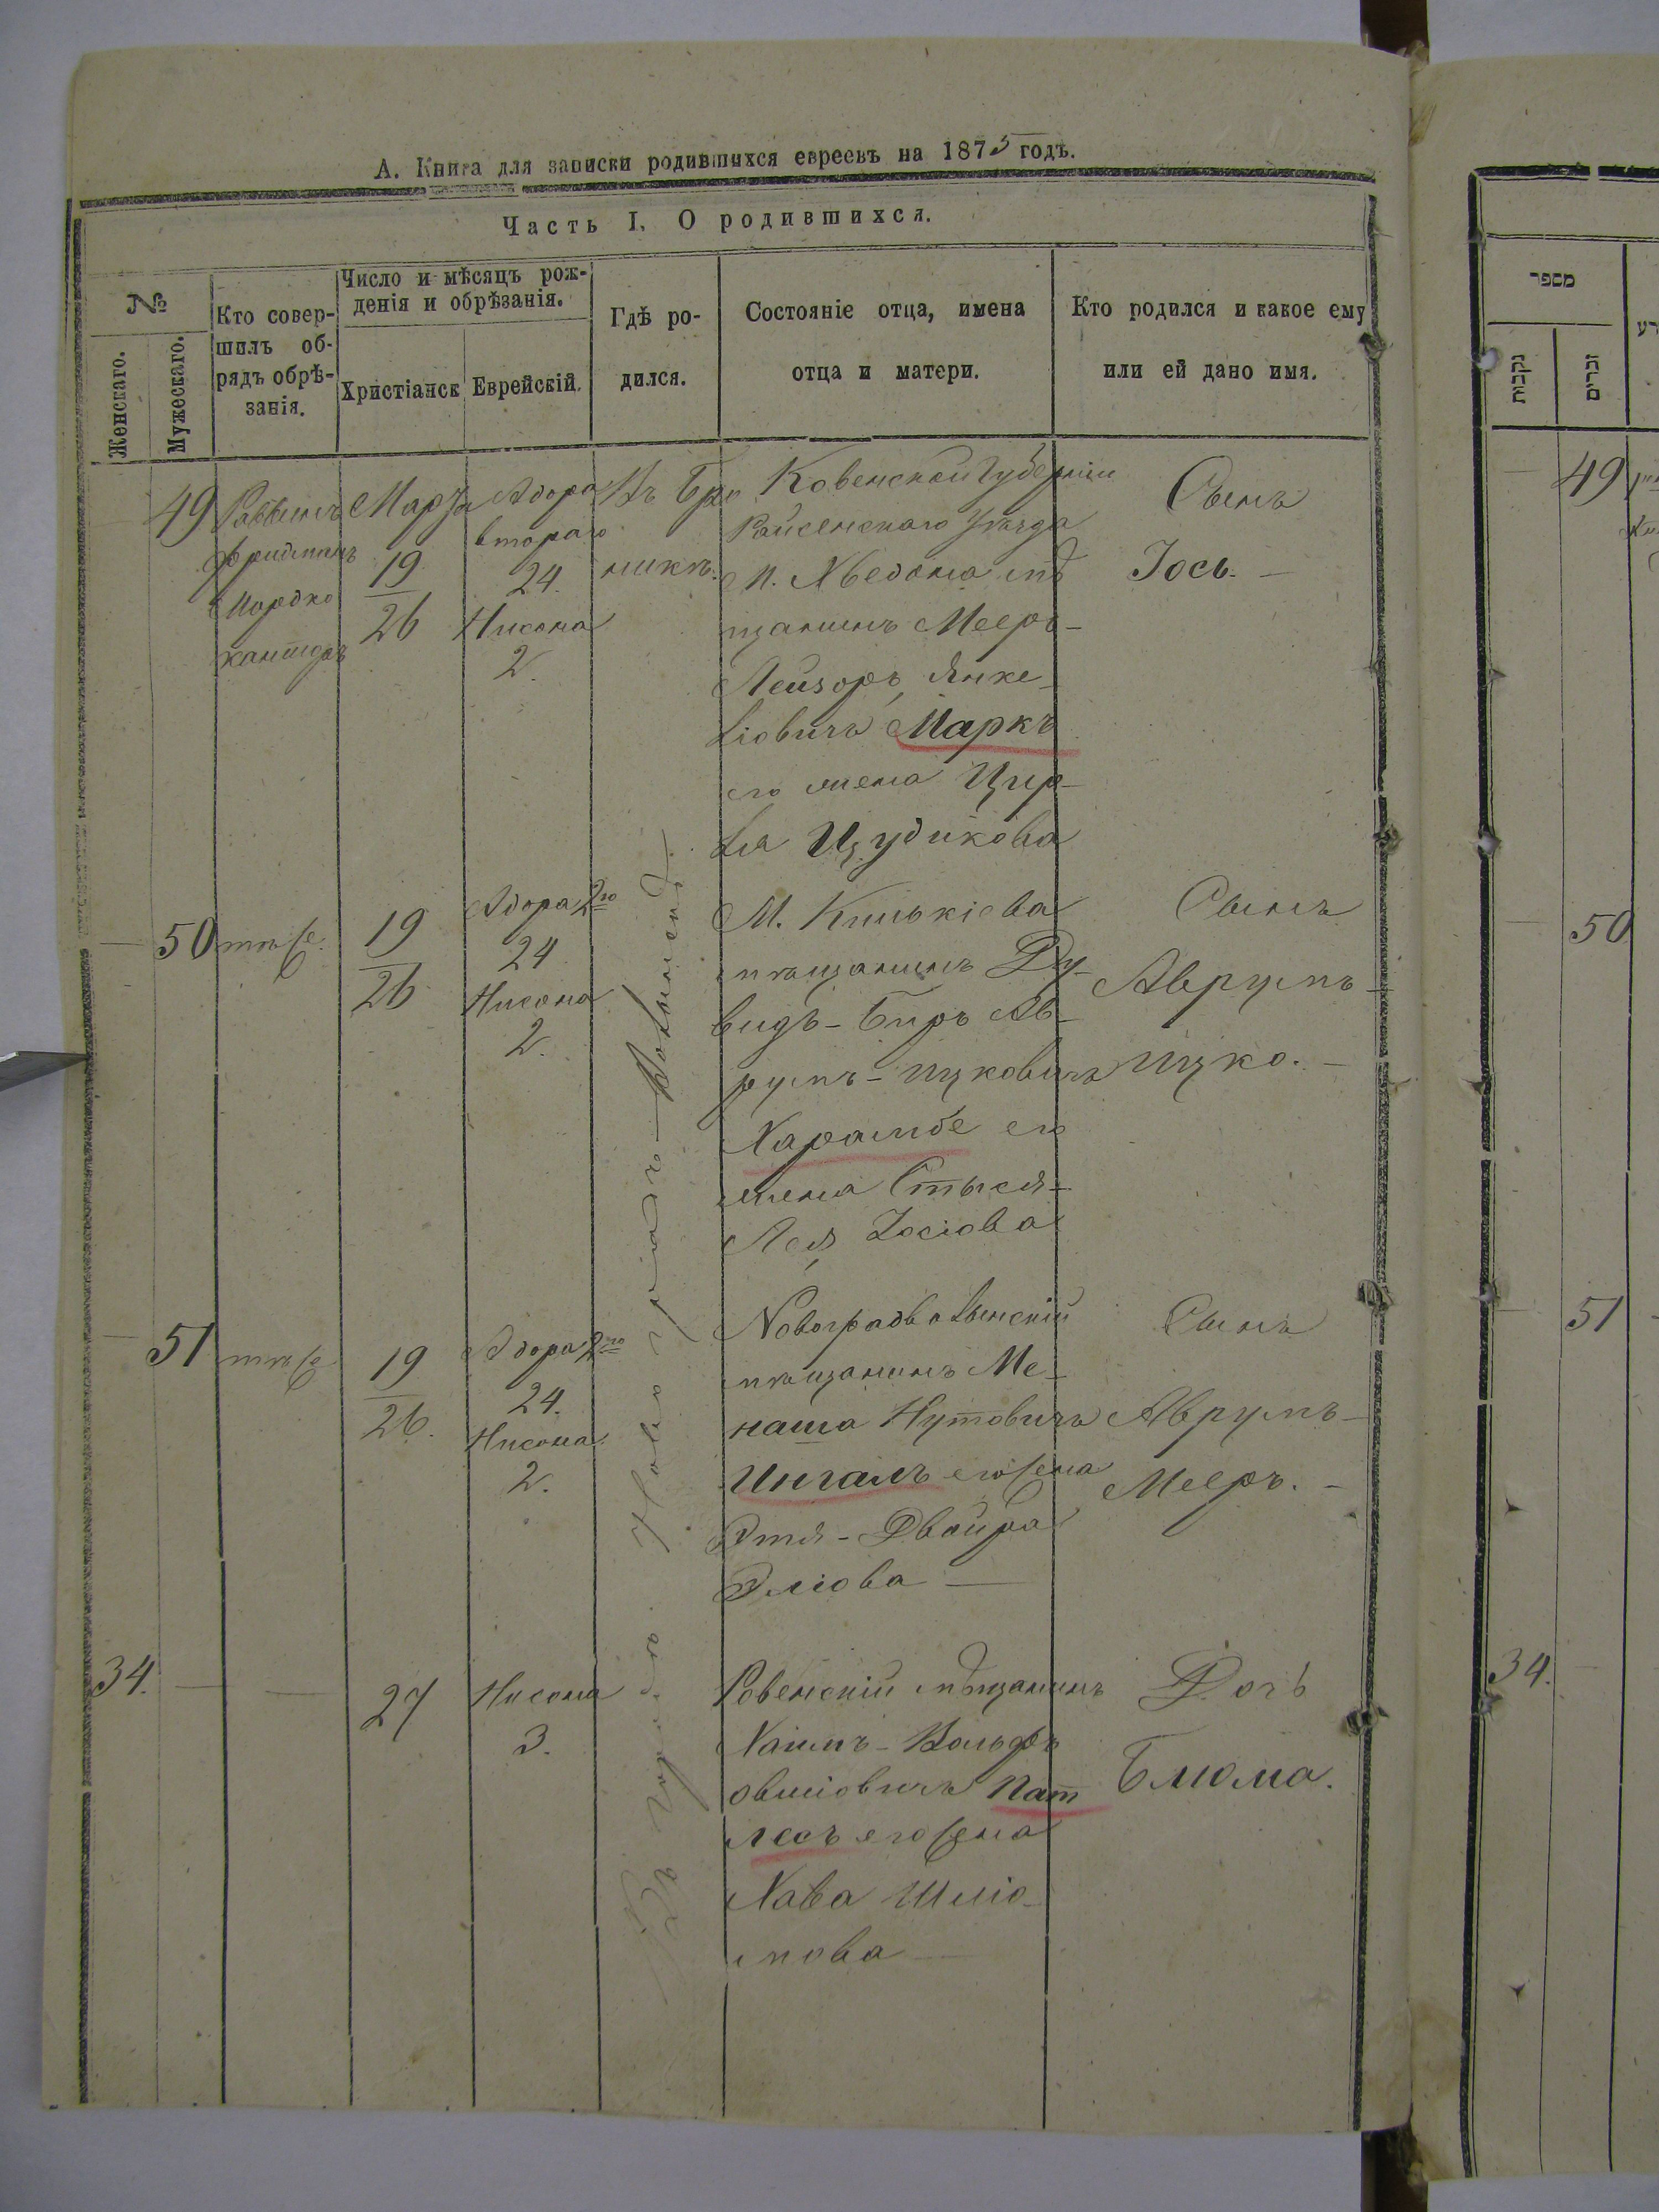 А. Книга для записки родившихся евреевъ на 1873 годъ.
Часть I. О родившихся.
№
Женскаго.
Мужескаго.
Кто совер-
шилъ об-
рядъ обрѣ-
занія.
Число и мѣсяцъ рож-
денія и обрѣзанія.
Христіанск
Еврейскій.
Гдѣ ро-
дился.
Состояніе отца, имена
отца и матери.
Кто родился и какое ему
или ей дано имя.
49
Раввинъ
Фридманъ
Мордко
Марта
19
26
Адора
втораго
24.
Нисона
2.
Въ
никъ.
Ковенской Губерніи
Уѣзда
м. мѣ
щанинъ Мееръ-
Лейзоръ Янке-
ліовичъ Маркъ
его жена Цир-
ля Цудикова
Сынъ
Іось. —
50
тоже
19
26
Адора 2го
24
Нисона
2.
М.
мѣщанинъ Ду-
видъ-Беръ Ав-
румъ-Ицковичъ
его
жена
Лея Іосіова
Сынъ
Аврумъ-
Ицко. —
51
тоже
19
26.
Адора 2го
24.
Нисона
2.
Новоградволынскій
мѣщанинъ Ме-
наша Нутовичъ
Ингалъ его жена
Этя-Двойра
Эліова —
Сынъ
Аврумъ-
Мееръ. —
34.
27
Нисона
3.
Въ городѣ. Новоградъ-Волынскѣ.
Ровенскій мѣщанинъ
Хаимъ-Вольфъ
Овшіовичъ Пат
лесъ его жена
Хава Шліо-
мова —
Дочь
Блюма.
מספר
נקבות
זכרים
49
50
51
34.